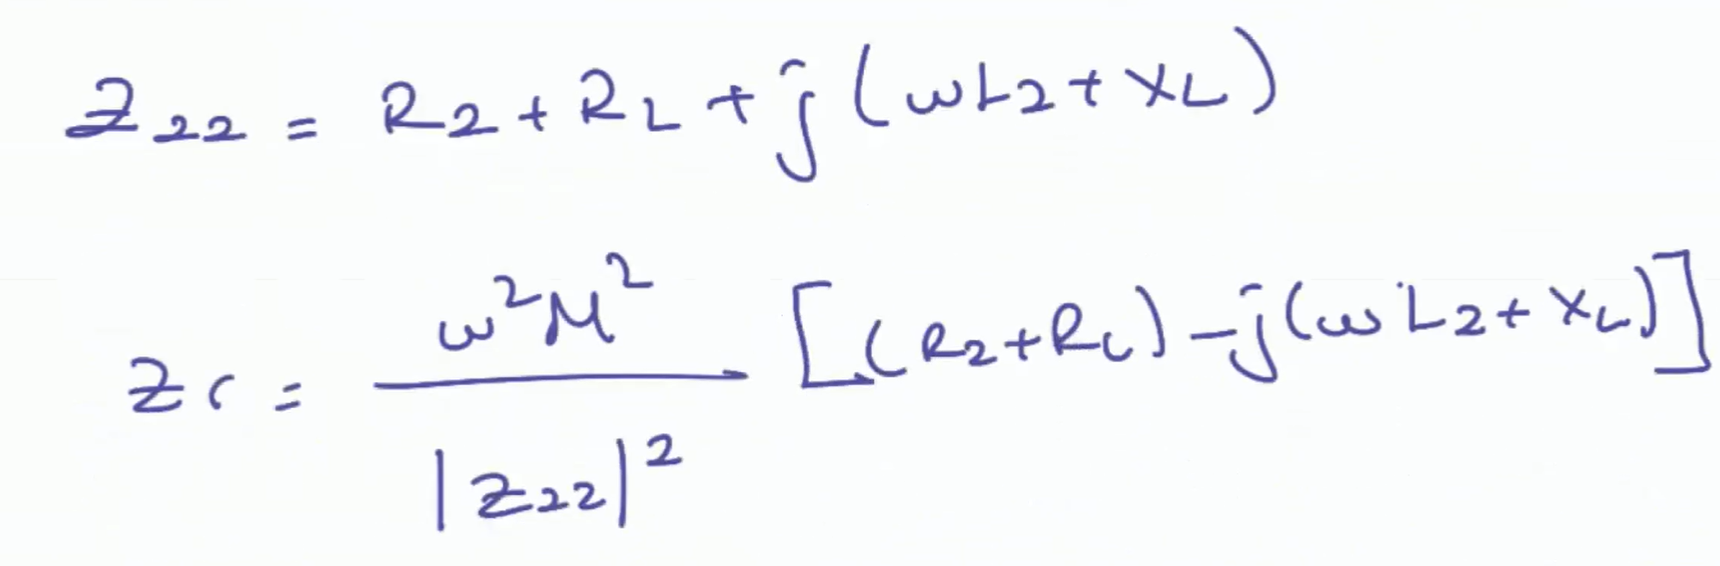 Z₂₂ = R₂ + R_L + j(ωL₂ + X_L)
Z_r = ω²M² / |Z₂₂|² [(R₂ + R_L) - j(ωL₂ + X_L)]